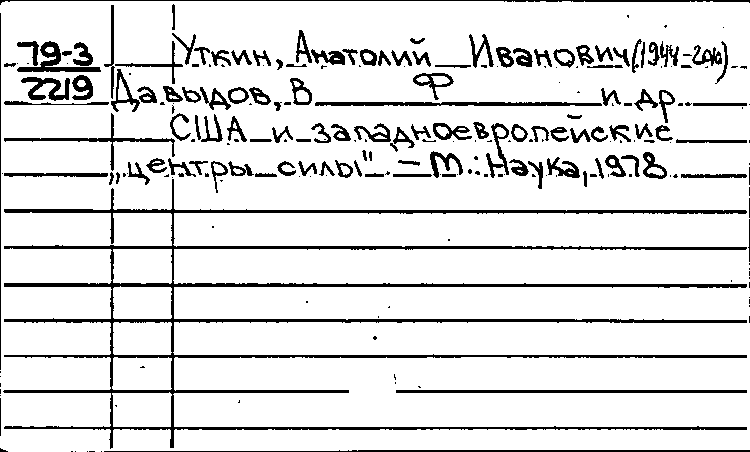 79-3
2219
Уткин, Анатолий Иванович (1944-2010)
Давыдов, В Ф и др
США и западноевропейские
„центры силы". – М.: Наука, 1978